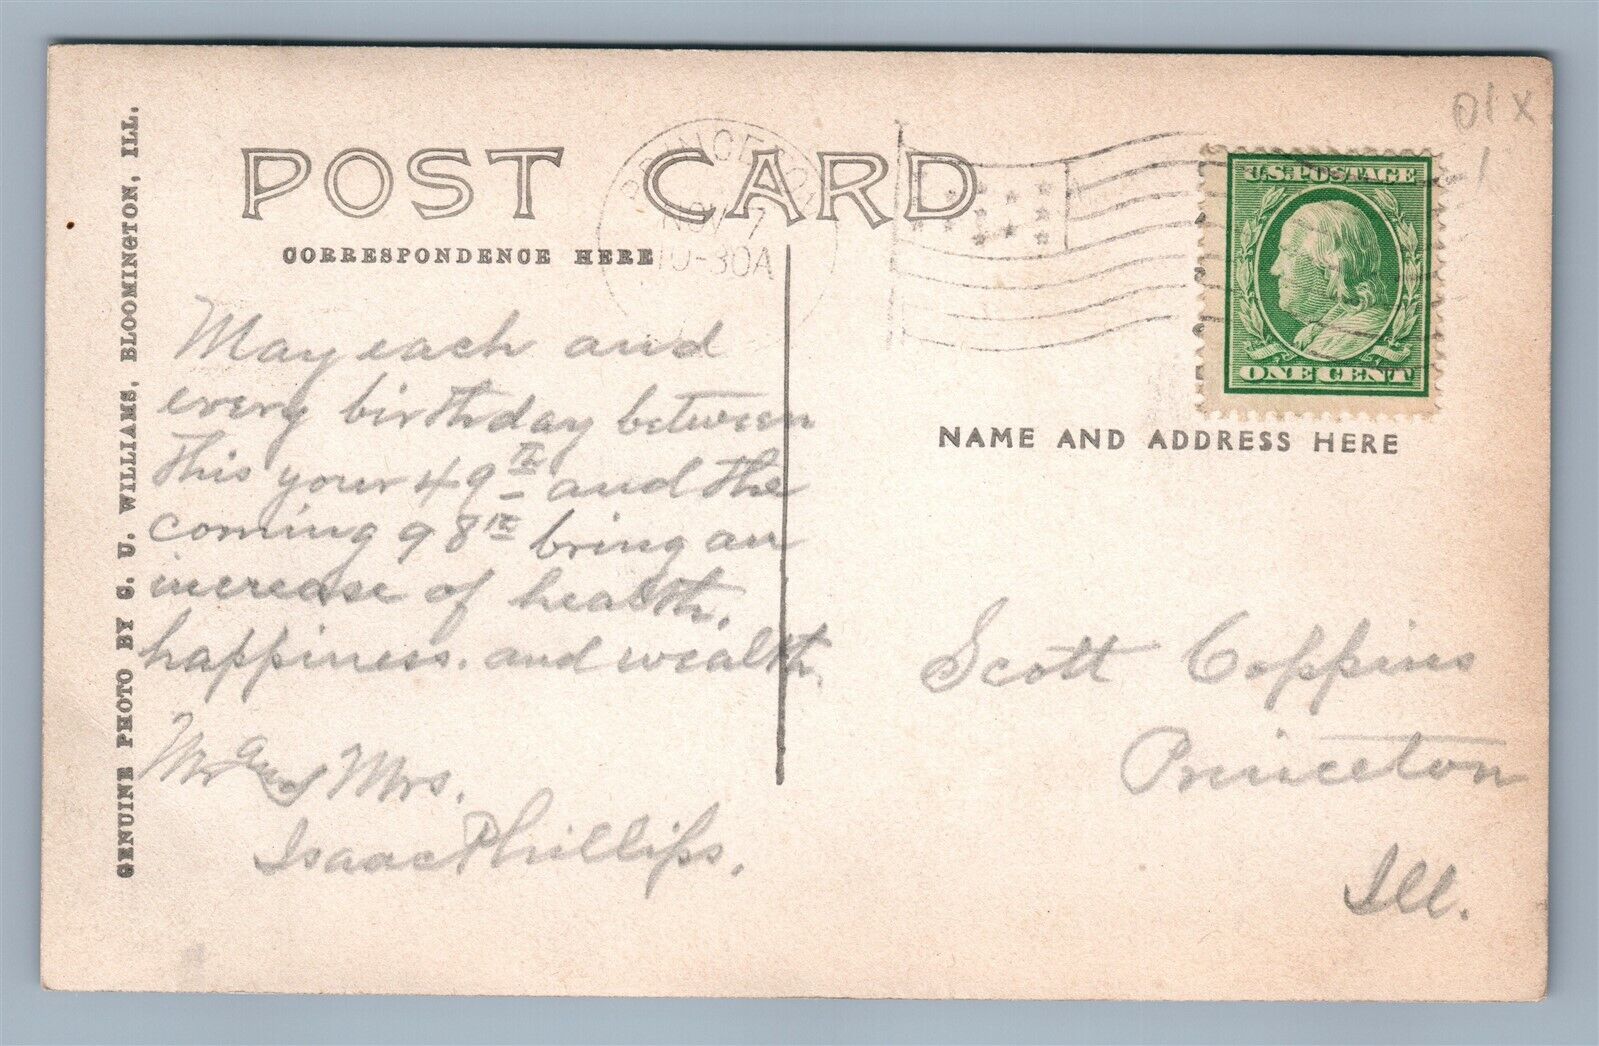 POST CARD
CORRESPONDENCE HERE
GENUINE PHOTO BY C. U. WILLIAMS, BLOOMINGTON, ILL.
PRINCETON
NOV 7
10-30A
U.S. POSTAGE
ONE CENT
01X
1
NAME AND ADDRESS HERE
May each and
every birthday between
this your 49th and the
coming 98th bring an
increase of health,
happiness. and wealth.
Mr and Mrs.
Isaac Phillips.
Scott Coppins
Princeton
Ill.